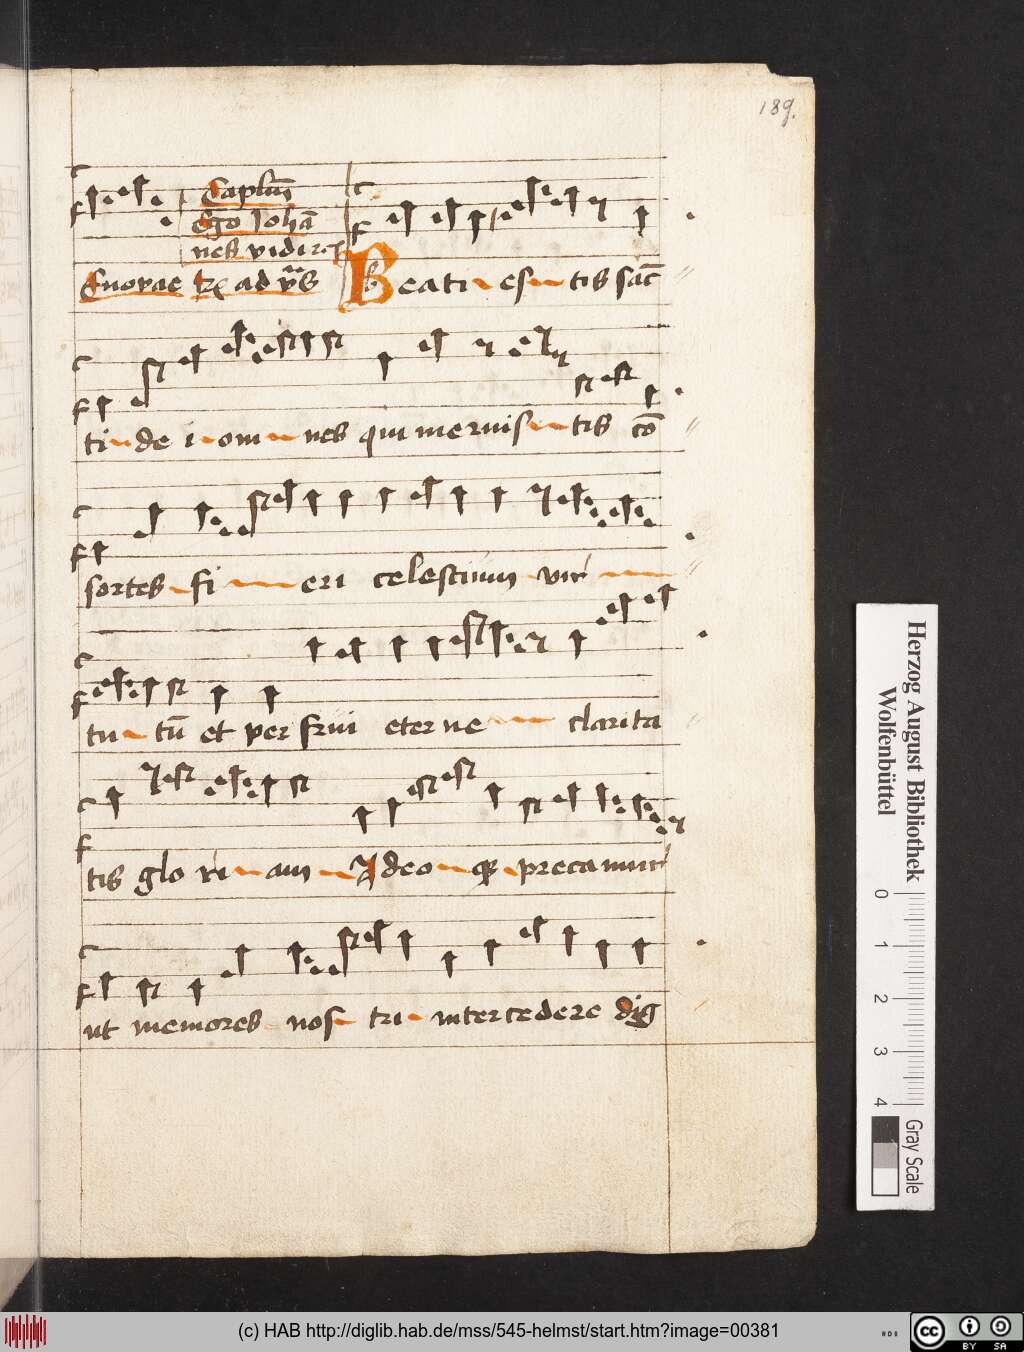 189.
Caplm̄
Ego Johā
nes vidi
Euovae ad
Beati es tis sāc
ti de i om nes qui meruis tis cō
sortes fi eri celestium vir
tu tū et per frui eter ne clarita
tis glo ri am Ideo precamur
ut memores nos tri intercedere dig
Herzog August Bibliothek
Wolfenbüttel
0 1 2 3 4
Gray Scale
(c) HAB http://diglib.hab.de/mss/545-helmst/start.htm?image=00381
cc BY SA